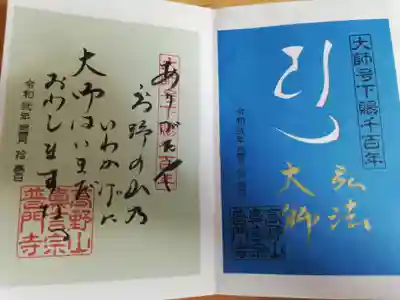 大師号下賜千百年
弘法
大師
令和弐年
高野山
真言宗
普門寺
ありがたや
高野の山乃
いわかげに
大師はいまだ
おわしますなる
令和弐年
高野山
真言宗
普門寺